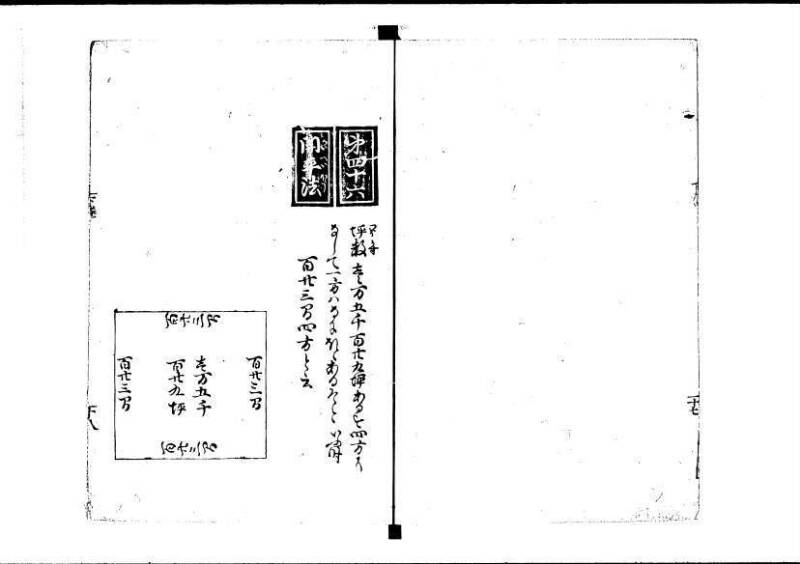 第四十六
開平法
坪数壱万五千百廿九坪あるを四方に
なして一方はなにほどあるぞといふ時
百廿三間四方と云
百廿三間
百廿三間
壱万五千
百廿九坪
百廿三間
百廿三間